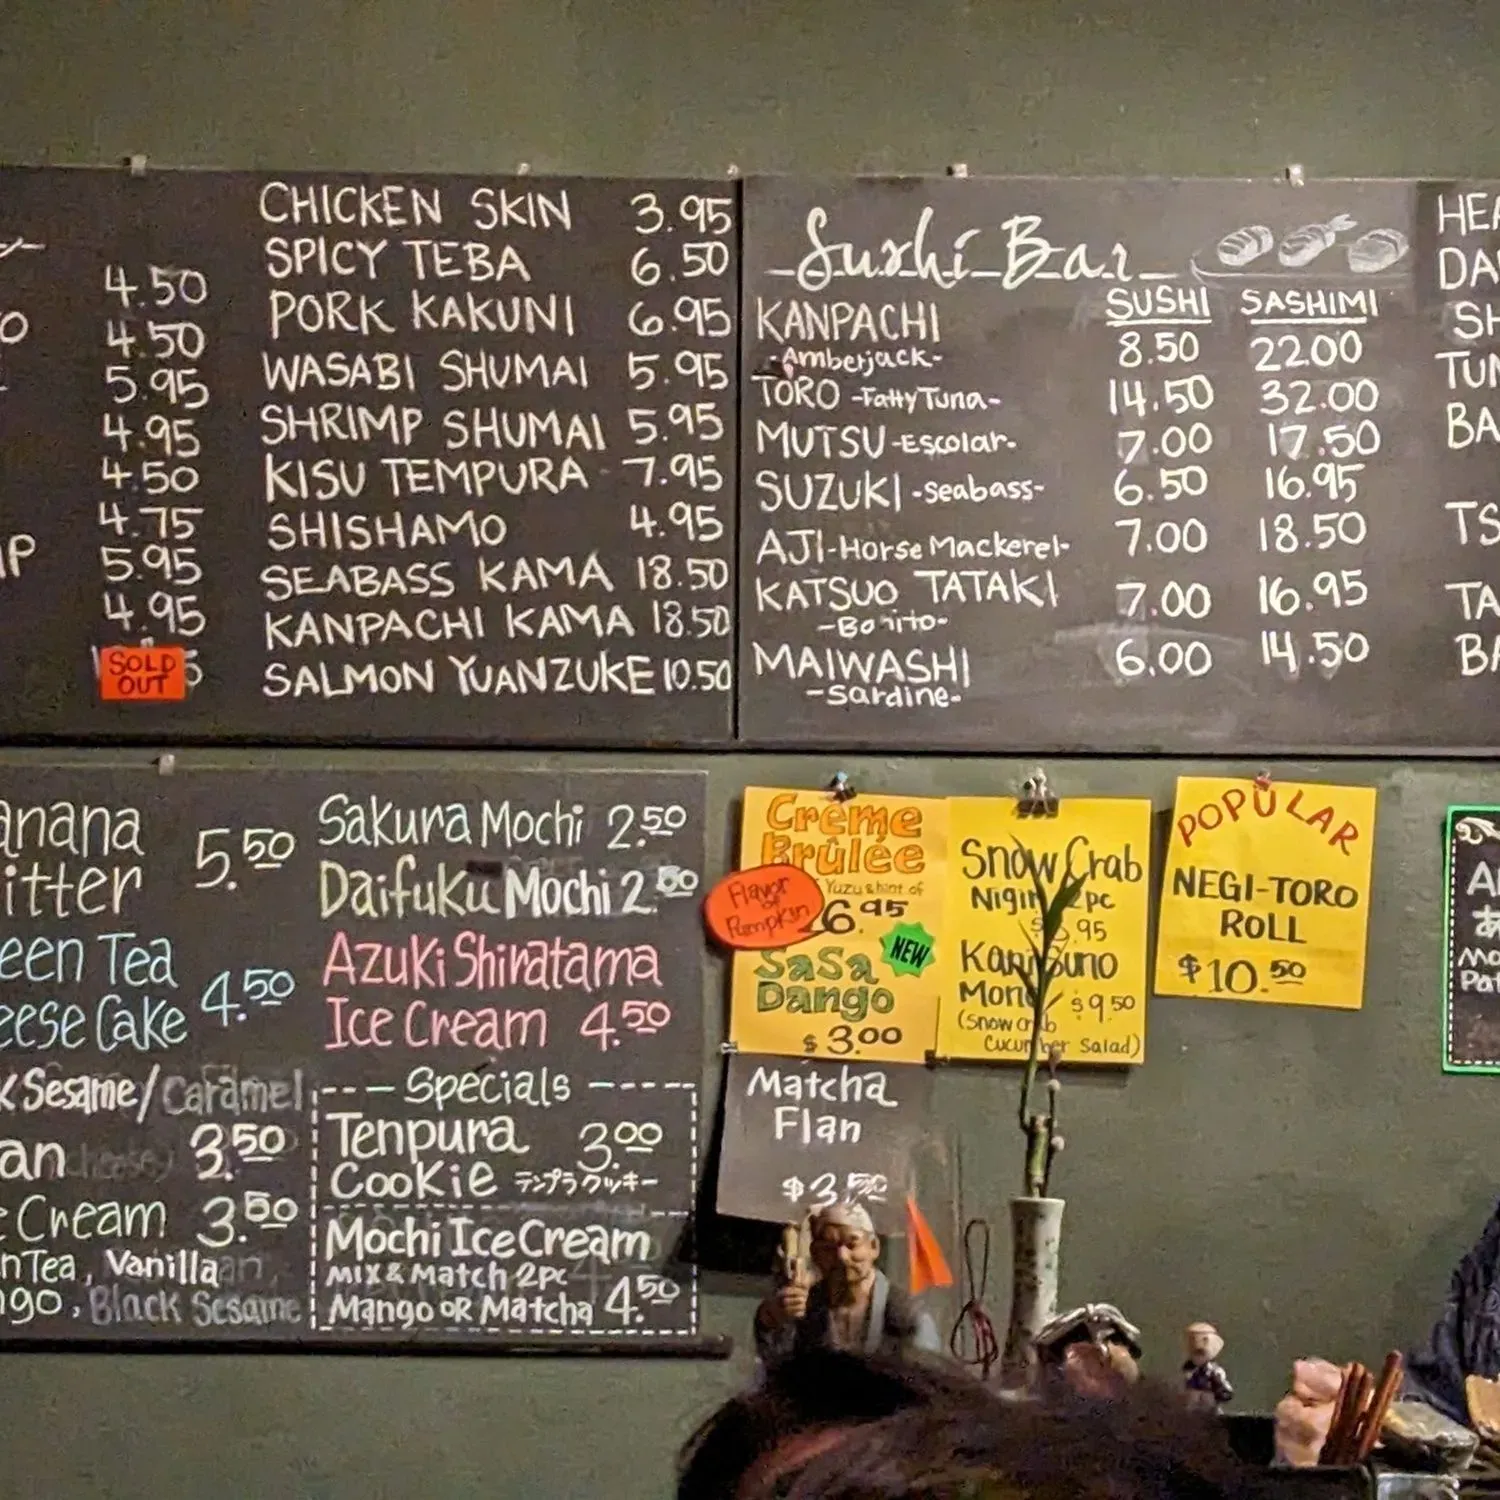 4.50
4.50
5.95
4.95
4.50
4.75
5.95
4.95
SOLD
OUT
CHICKEN SKIN 3.95
SPICY TEBA 6.50
PORK KAKUNI 6.95
WASABI SHUMAI 5.95
SHRIMP SHUMAI 5.95
KISU TEMPURA 7.95
SHISHAMO 4.95
SEABASS KAMA 18.50
KANPACHI KAMA 18.50
SALMON YUANZUKE 10.50
Sushi Bar
SUSHI SASHIMI
KANPACHI 8.50 22.00
-Amberjack-
TORO -Fatty Tuna- 14.50 32.00
MUTSU -Escolar- 7.00 17.50
SUZUKI -Seabass- 6.50 16.95
AJI -Horse Mackerel- 7.00 18.50
KATSUO TATAKI 7.00 16.95
-Bonito-
MAIWASHI 6.00 14.50
-Sardine-
HEA
DA
SH
TUN
BA
TS
TA
BA
anana
itter 5.50
een Tea
eese Cake 4.50
k Sesame/Caramel
an 3.50
e Cream 3.50
n Tea, Vanilla
ngo, Black Sesame
Sakura Mochi 2.50
Daifuku Mochi 2.50
Azuki Shiratama
Ice Cream 4.50
Specials
Tenpura 3.00
Cookie テンプラクッキー
Mochi Ice Cream
Mix & Match 2pc
Mango OR Matcha 4.50
Crème
Brûlée
Yuzu & hint of
Flavor
of
Pumpkin
6.95
NEW
SaSa
Dango
$3.00
Matcha
Flan
$3.50
Snow Crab
Nigiri 2pc
.95
Kanisuno
Mono $9.50
(Snow crab
Cucumber Salad)
POPULAR
NEGI-TORO
ROLL
$10.50